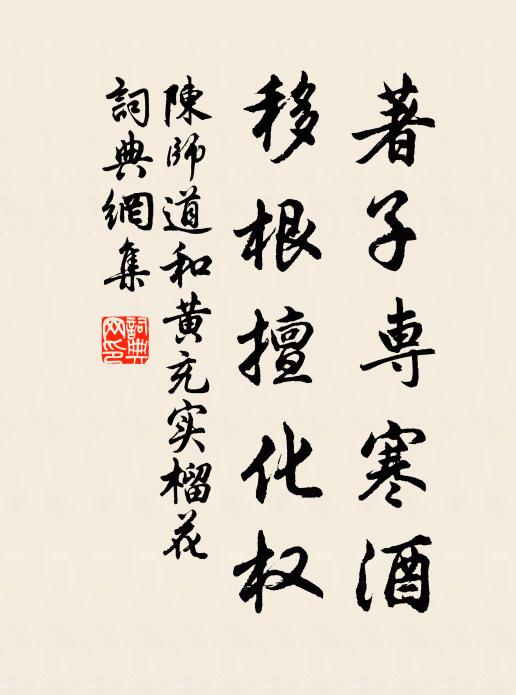 著子専寒酒
移根擅化权
陳師道和黄充实榴花
詞典網集
詞典网印